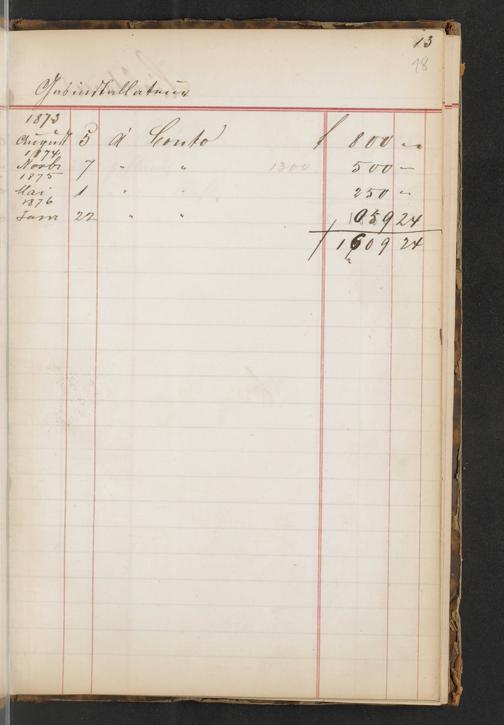 13
18
Gasinstallateur
1873
August 5 à Conto f 800 „
1874
Novbr 7 „ „ 1300 500 „
1875
Mai 1 „ „ 250 „
1876
Jan 22 „ „ 059 24
f 1609 24